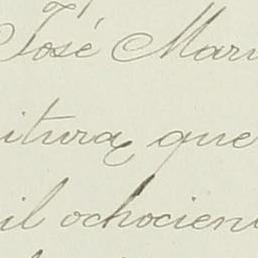 José Mari
itura que
il ochocien